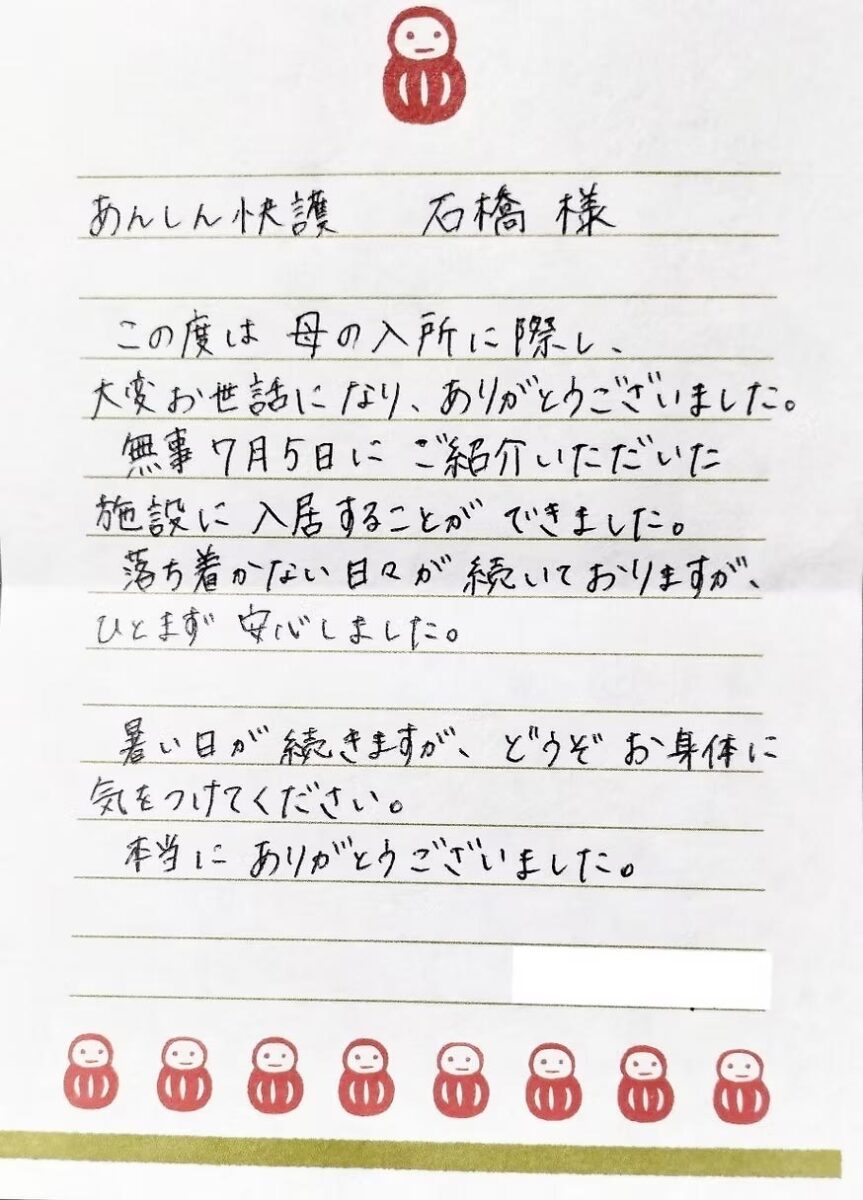 あんしん快護　石橋 様
この度は 母の入所に際し、
大変お世話になり、ありがとうございました。
無事7月5日に ご紹介いただいた
施設に 入居することが できました。
落ち着かない日々が 続いておりますが、
ひとまず 安心しました。
暑い日が 続きますが、どうぞ お身体に
気をつけてください。
本当に ありがとうございました。